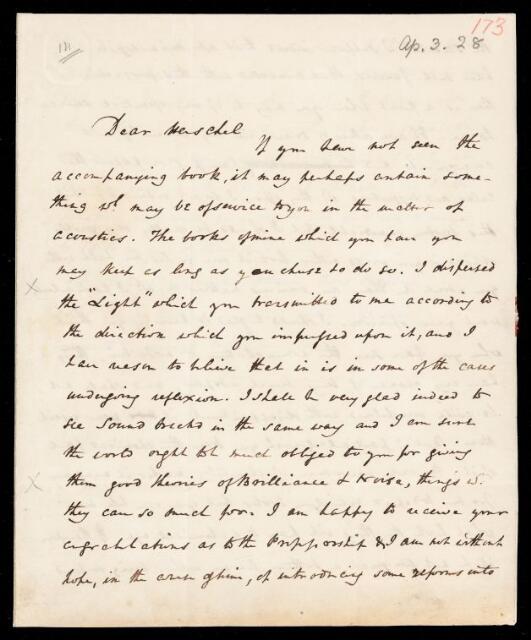 173
Ap. 3. 28
Dear Herschel
If you have not seen the
accompanying book, it may perhaps contain some-
thing wh. may be of service to you in the matter of
acoustics. The books of mine which you have you
may keep as long as you chuse to do so. I dispersed
the "Light" which you transmitted to me according to
the direction which you impressed upon it, and I
have reason to believe that in is in some of the cases
undergoing reflexion. I shall be very glad indeed to
see Sound treated in the same way and I am sure
the world ought to be much obliged to you for giving
them good theories of Brilliance & Noise, things wh.
they care so much for. I am happy to receive your
congratulations as to the Professorship & I am not without
hope, in the course of time, of introducing some reforms into